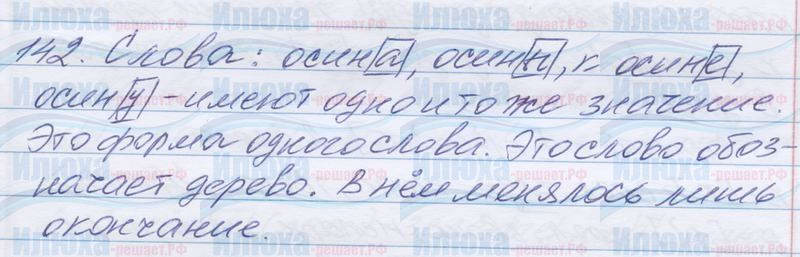 142. Слова: осина, осины, к осине,
осину – имеют одно и то же значение.
Это форма одного слова. Это слово обоз-
начает дерево. В нём менялось лишь
окончание.